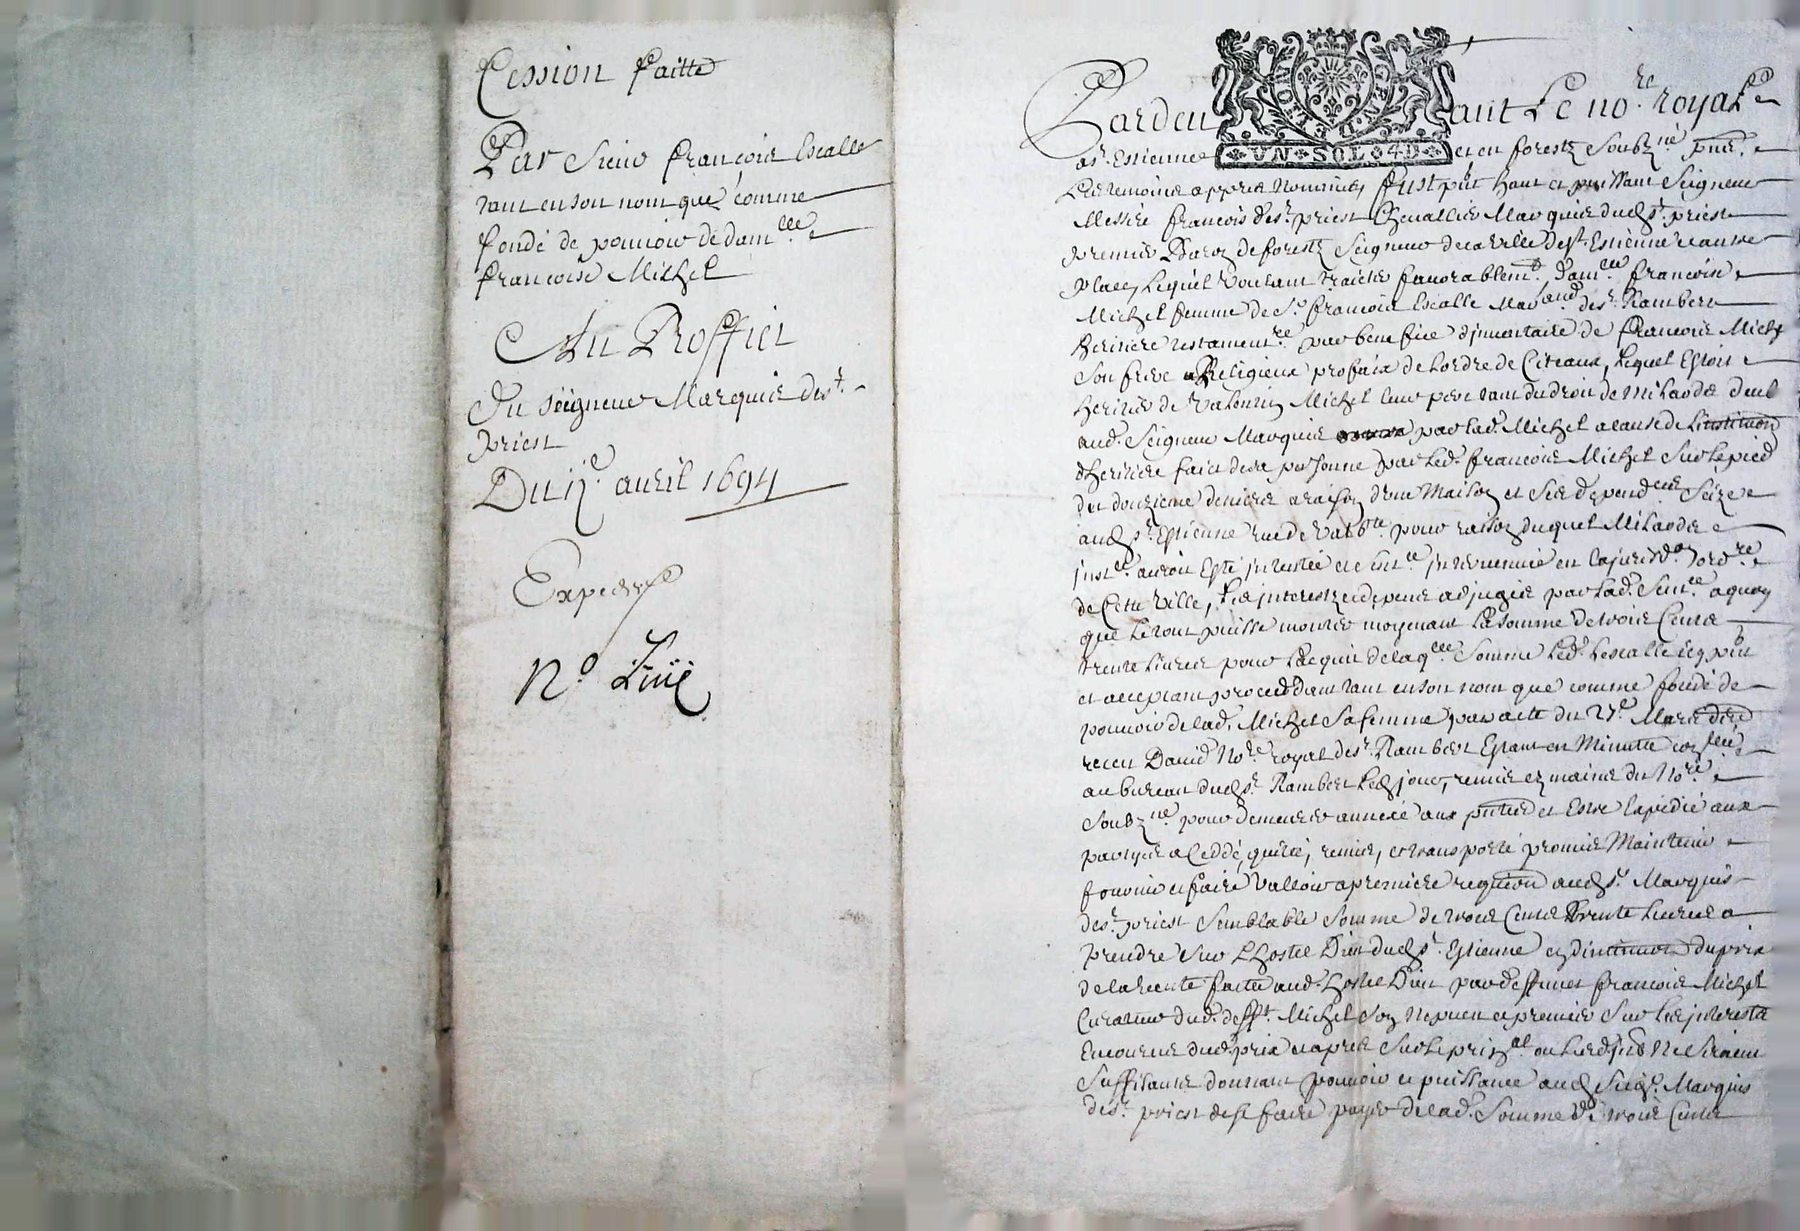 Cession faitte
Par Sieur françois Escalle
tant en son nom que comme
fondé de pouvoir de dam.lle
françoise Michel
Au Proffict
Du seigneur Marquis de s.t
priest
Du avril 1694
Expedié
N.o
Pardevant Le no.re royal
a s.t Estienne et en forestz Soubz.né
Les temoins appres nommés, fust pnt haut et puissant Seigneur
Messire françois de s.t priest Chevallier Marquis dud s.t priest
premier Baron de forestz Seigneur de la ville de s.t Estienne et autres
places, Lequel voulant traicter favorablem.t dam.lle françoise
Michel femme de s.r françois Escalle Mar.and de s.t Rambert
heritiere testament.re par benefice d'inventaire de françois Michel
son frere Religieux profaix de Lordre de Citeaux, Lequel Estoit
heritier de Valentin Michel leur pere tant du droit de milaods deub
aud. Seigneur Marquis par lad. Michel a cause de Linstitution
dheritiere faict de sa personne par led. françois Michel sur le pied
du douzieme denier a raison dune Maison et ses depend.ces Seize
aud s.t Estienne rue de pour raison duquel Milaods
inst.ce auroit Esté intentée et sent.ce intervenue en la jurid.on ord.re
de Cette Ville, Les interestz et depens adjugés par lad. Sent.ce a quoy
que le tout puisse monter moyenant La somme de trois Cents
trente Livres pour Lacquit de laq.lle Somme Led. Lescalle icy pnt
et acceptant procedant tant en son nom que comme fondé de
pouvoir de lad. Michel sa femme par acte du 27.e Mars
receu David No.re royal de s.t Rambert Estant en Minutte
au bureau dud s.t Rambert Led jour, remis ez mains du No.re
Soubz.né pour demeurer annexé aux pntes et Estre Expedié aux
partyes a Ceddé, quitté, remis, et transporté promis Maintenir
fournir et faire Valloir a premiere requition aud s.r Marquis
de s.t priest Semblable Somme de trois Cents trente Livres a
prendre sur Lhostel Dieu dud s.t Estienne en diminution du prix
de la vente faitte aud. hostel Dieu par deffunct françois Michel
Curateur dud. deff.t Michel son Nepveu et premier Sur Les interestz
Encourus dud prix et apres sur le prin.al ou Lesd Ne Seroient
Suffisants donnant pouvoir et puissance aud Seig.r Marquis
de s.t priest de se faire payer de lad. Somme de trois Cents